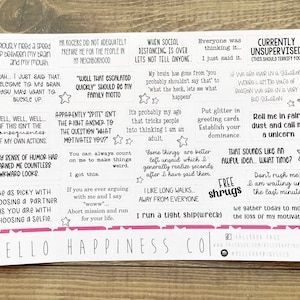 seriously need a speed
between my brain
and my mouth.
Mr Rogers did not adequately
prepare me for the people in
my neighborhood
When social
distancing is over
let's not tell anyone...
Everyone was
thinking it...
I just said it.
CURRENTLY
UNSUPERVISED
(THIS SHOULD TERRIFY YOU)
I just said that.
Welcome to my brain
You may want to
buckle up.
"Well that escalated
quickly" should be my
family motto
My brain has gone from "you
probably shouldn't say that" to
"what the heck, let's see what
happens"
Well, well, well...
if this isn't the
consequences
of my own actions.
Apparently "spite" isn't
the right answer to
the question "what
motivates you?"
It's probably my age
that tricks people
into thinking I am an
adult.
Put glitter in
greeting cards
Establish your
dominance
Roll me in fairy
dust and call me
a unicorn
My sense of humor has
countless
awkward looks.
You can always count
on me to make things
weird.
I got this.
Some things are better
left unsaid which I
generally realize seconds
after I have said them
That sounds like an
awful idea... What time?
as picky with
choosing a partner
as you are with
choosing a selfie.
If you are ever arguing
with me and I say
"woww"...
Abort mission and run
for your life.
I like long walks...
away from everyone
FREE
shrugs
Don't rush me
I am waiting until
the last minute
I run a tight shipwreck!
We gather today to mourn
the loss of my motivation
HELLO HAPPINESS CO